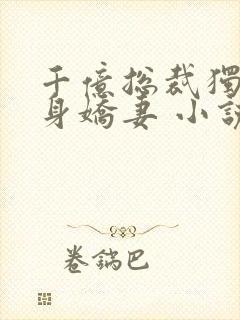 千億总裁獨
身嬌妻 小說
卷鍋巴